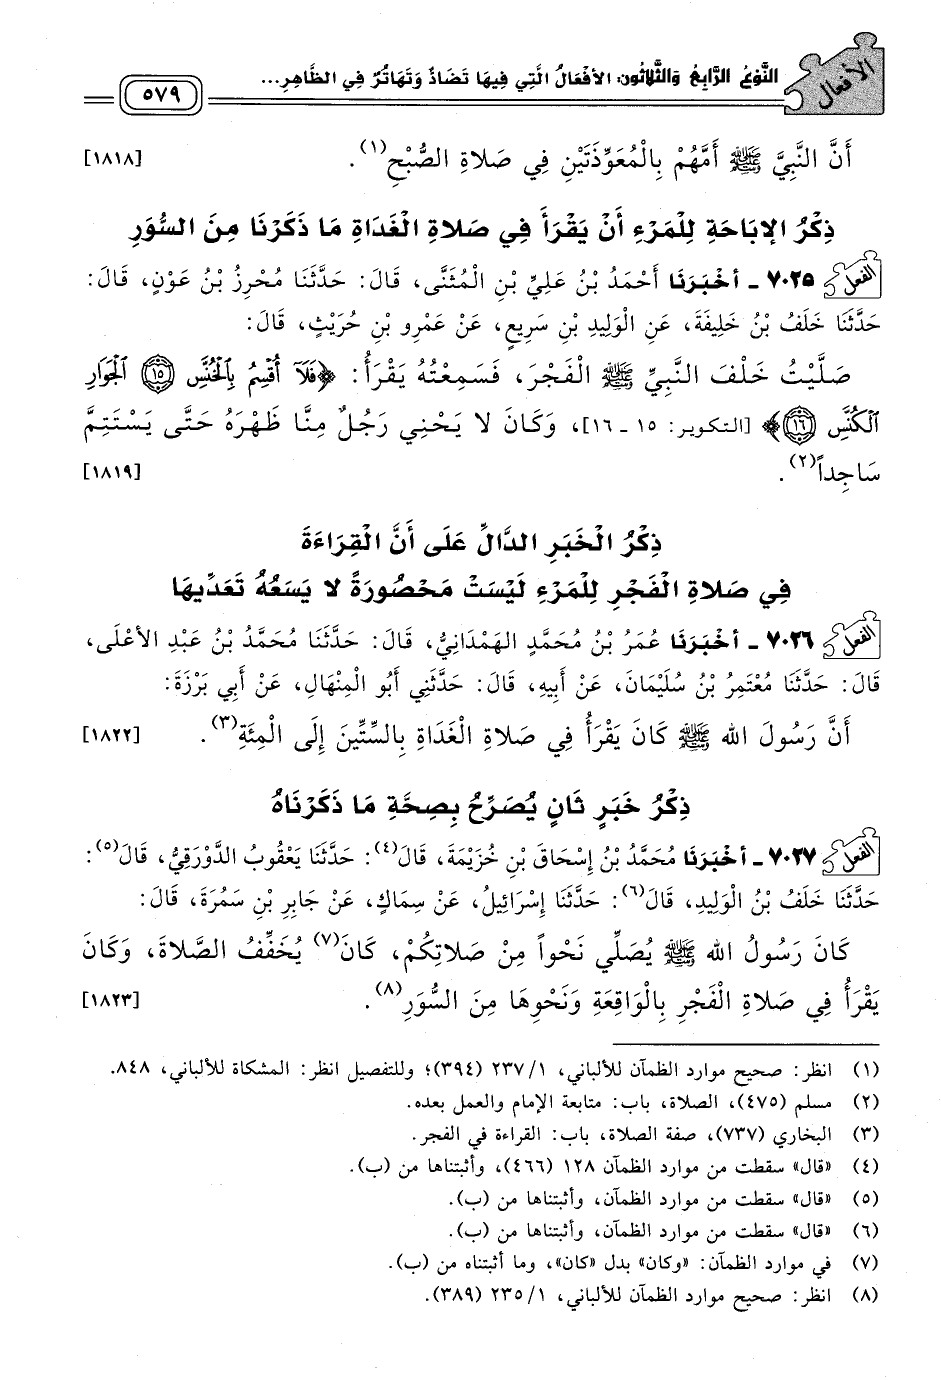 الأفعال
النَّوْعُ الرَّابِعُ وَالثَّلاثُون: الأفْعَالُ الَّتِي فِيهَا تَضَادٌ وَتَهَاتُرٌ فِي الظَّاهِرِ...
٥٧٩
أَنَّ النَّبِيَّ ﷺ أَمَّهُمْ بِالْمُعَوِّذَتَيْنِ فِي صَلاةِ الصُّبْحِ(١). [١٨١٨]
ذِكْرُ الإبَاحَةِ لِلْمَرْءِ أَنْ يَقْرَأَ فِي صَلاةِ الْغَدَاةِ مَا ذَكَرْنَا مِنَ السُّوَرِ
الفعل ٧٠٢٥ - أخْبَرَنَا أَحْمَدُ بْنُ عَلِيِّ بْنِ الْمُثَنَّى، قَالَ: حَدَّثَنَا مُحْرِزُ بْنُ عَوْنٍ، قَالَ:
حَدَّثَنَا خَلَفُ بْنُ خَلِيفَةَ، عَنِ الْوَلِيدِ بْنِ سَرِيعٍ، عَنْ عَمْرِو بْنِ حُرَيْثٍ، قَالَ:
صَلَّيْتُ خَلْفَ النَّبِيِّ ﷺ الْفَجْرَ، فَسَمِعْتُهُ يَقْرَأُ: ﴿فَلَآ أُقْسِمُ بِٱلْخُنَّسِ ١٥ ٱلْجَوَارِ
ٱلْكُنَّسِ ١٦﴾ [التكوير: ١٥ - ١٦]، وَكَانَ لا يَحْنِي رَجُلٌ مِنَّا ظَهْرَهُ حَتَّى يَسْتَتِمَّ
سَاجِداً(٢). [١٨١٩]
ذِكْرُ الْخَبَرِ الدَّالِّ عَلَى أَنَّ الْقِرَاءَةَ
فِي صَلاةِ الْفَجْرِ لِلْمَرْءِ لَيْسَتْ مَحْصُورَةً لا يَسَعُهُ تَعَدِّيهَا
الفعل ٧٠٢٦ - أخْبَرَنَا عُمَرُ بْنُ مُحَمَّدٍ الهَمْدَانِيُّ، قَالَ: حَدَّثَنَا مُحَمَّدُ بْنُ عَبْدِ الأعْلَى،
قَالَ: حَدَّثَنَا مُعْتَمِرُ بْنُ سُلَيْمَانَ، عَنْ أَبِيهِ، قَالَ: حَدَّثَنِي أَبُو الْمِنْهَالِ، عَنْ أَبِي بَرْزَةَ:
أَنَّ رَسُولَ الله ﷺ كَانَ يَقْرَأُ فِي صَلاةِ الْغَدَاةِ بِالسِّتِّينَ إِلَى الْمِئَةِ(٣). [١٨٢٢]
ذِكْرُ خَبَرٍ ثَانٍ يُصَرِّحُ بِصِحَّةِ مَا ذَكَرْنَاهُ
الفعل ٧٠٢٧ - أخْبَرَنَا مُحَمَّدُ بْنُ إِسْحَاقَ بْنِ خُزَيْمَةَ، قَالَ(٤): حَدَّثَنَا يَعْقُوبُ الدَّوْرَقِيُّ، قَالَ(٥):
حَدَّثَنَا خَلَفُ بْنُ الْوَلِيدِ، قَالَ(٦): حَدَّثَنَا إِسْرَائِيلُ، عَنْ سِمَاكٍ، عَنْ جَابِرِ بْنِ سَمُرَةَ، قَالَ:
كَانَ رَسُولُ الله ﷺ يُصَلِّي نَحْواً مِنْ صَلاتِكُمْ، كَانَ(٧) يُخَفِّفُ الصَّلاةَ، وَكَانَ
يَقْرَأُ فِي صَلاةِ الْفَجْرِ بِالْوَاقِعَةِ وَنَحْوِهَا مِنَ السُّوَرِ(٨). [١٨٢٣]
(١) انظر: صحيح موارد الظمآن للألباني، ٢٣٧/١ (٣٩٤)؛ وللتفصيل انظر: المشكاة للألباني، ٨٤٨.
(٢) مسلم (٤٧٥)، الصلاة، باب: متابعة الإمام والعمل بعده.
(٣) البخاري (٧٣٧)، صفة الصلاة، باب: القراءة في الفجر.
(٤) «قال» سقطت من موارد الظمآن ١٢٨ (٤٦٦)، وأثبتناها من (ب).
(٥) «قال» سقطت من موارد الظمآن، وأثبتناها من (ب).
(٦) «قال» سقطت من موارد الظمآن، وأثبتناها من (ب).
(٧) في موارد الظمآن: «وكان» بدل «كان»، وما أثبتناه من (ب).
(٨) انظر: صحيح موارد الظمآن للألباني، ٢٣٥/١ (٣٨٩).